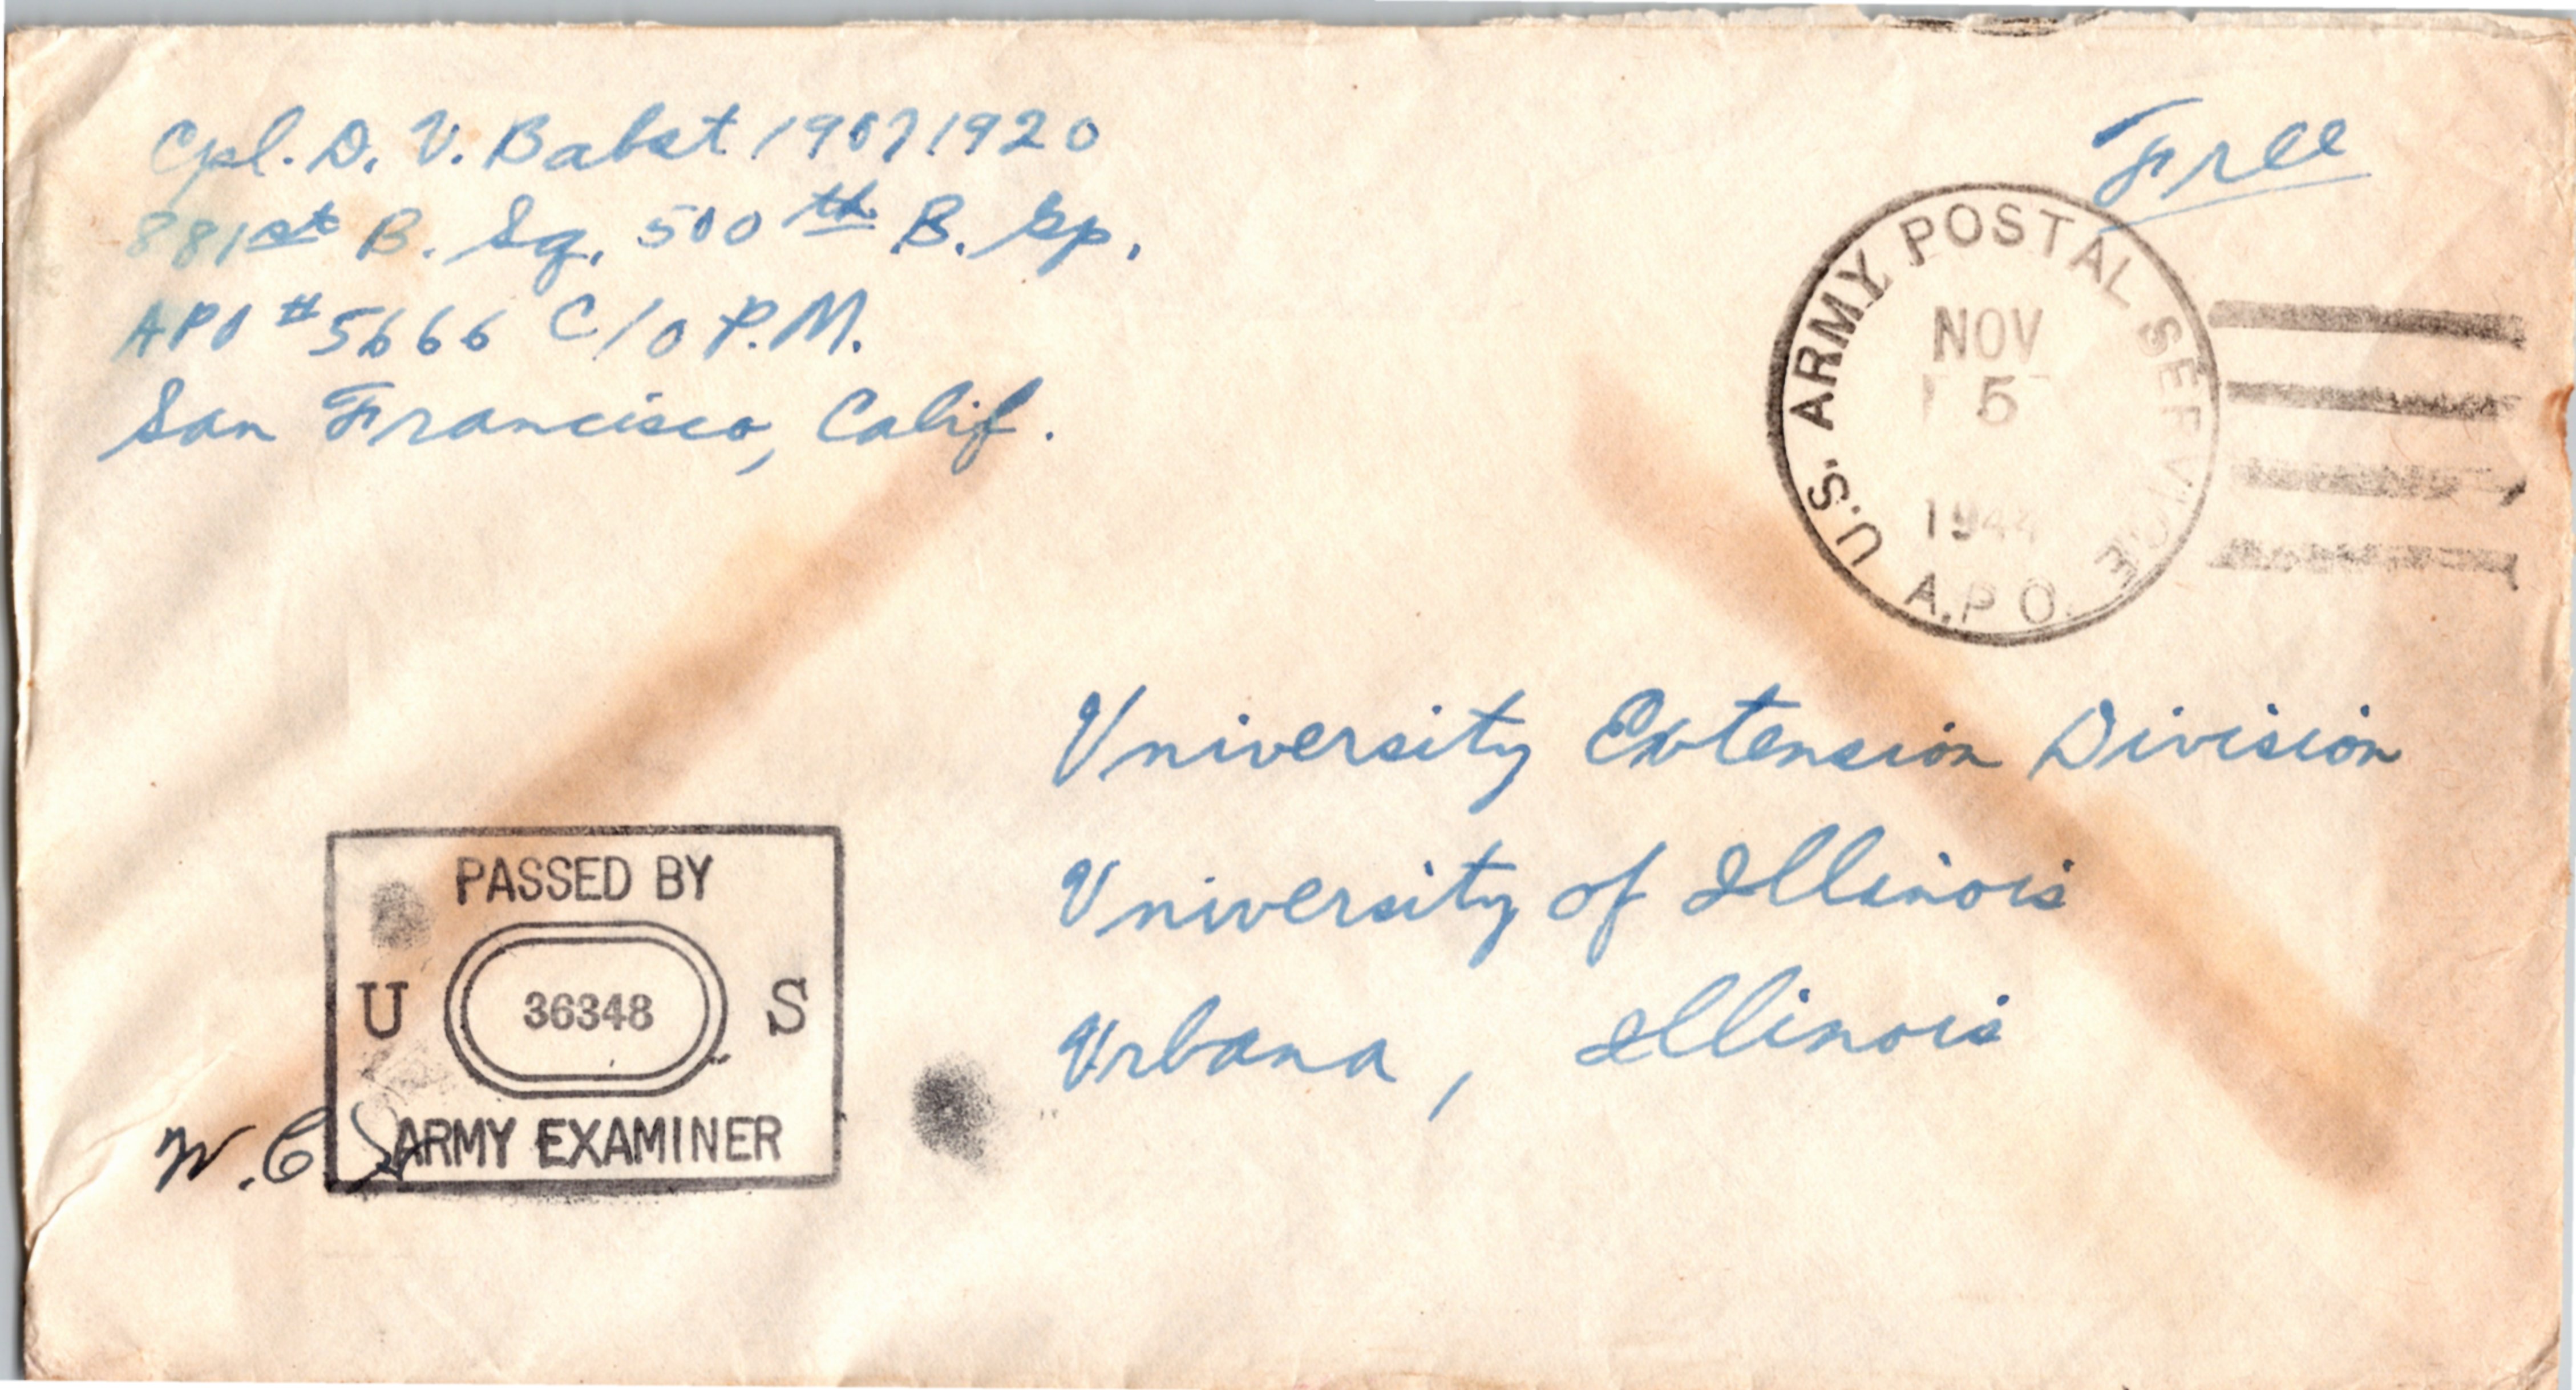 Cpl. D. V. Babst 19071920
881st B. Sq. 500th B. Gp.
APO #5666 C/O P.M.
San Francisco, Calif.
Free
U.S. ARMY POSTAL SERVICE
NOV
5
1944
A.P.O.
University Extension Division
University of Illinois
Urbana, Illinois
PASSED BY
U 36348 S
ARMY EXAMINER
W. C.